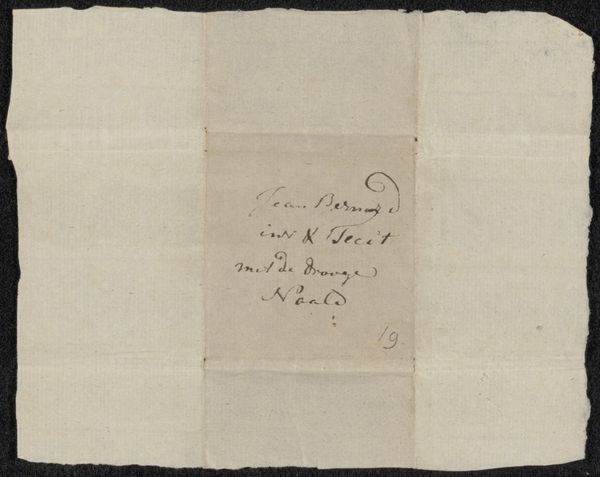 Jean Bernard
inv & Fecit
met de drooge
Naald
19.